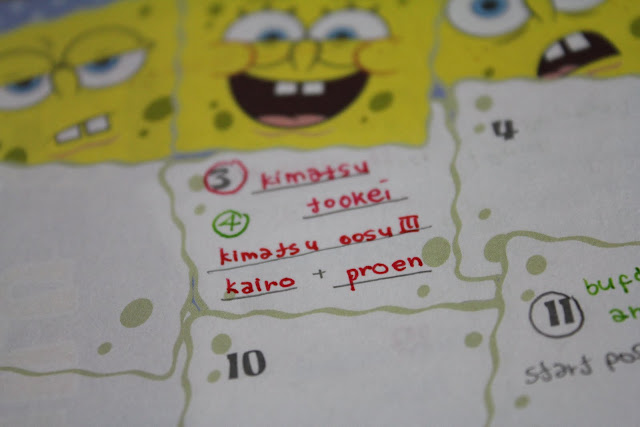 3 kimatsu
tookei
4 kimatsu oosu III
kairo + proen
4
10
11
start pos